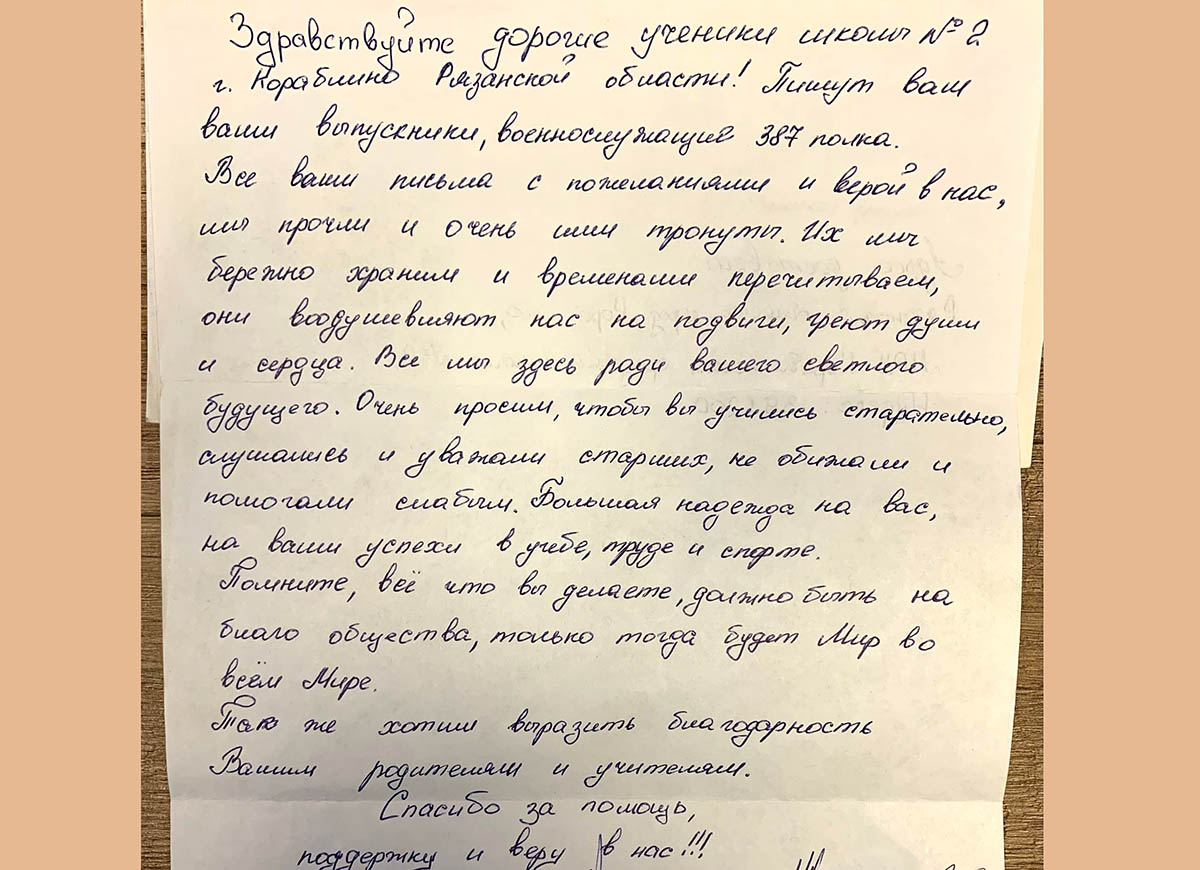 Здравствуйте дорогие ученики школы № 2
г. Кораблино Рязанской области! Пишут вам
ваши выпускники, военнослужащие 387 полка.
Все ваши письма с пожеланиями и верой в нас,
мы прочли и очень ими тронуты. Их мы
бережно храним и временами перечитываем,
они воодушевляют нас на подвиги, греют души
и сердца. Все мы здесь ради вашего светлого
будущего. Очень просим, чтобы вы учились старательно,
слушались и уважали старших, не обижали и
помогали слабым. Большая надежда на вас,
на ваши успехи в учебе, труде и спорте.
Помните, всё что вы делаете, должно быть на
благо общества, только тогда будет Мир во
всём Мире.
Так же хотим выразить благодарность
Вашим родителям и учителям.
Спасибо за помощь,
поддержку и веру в нас!!!